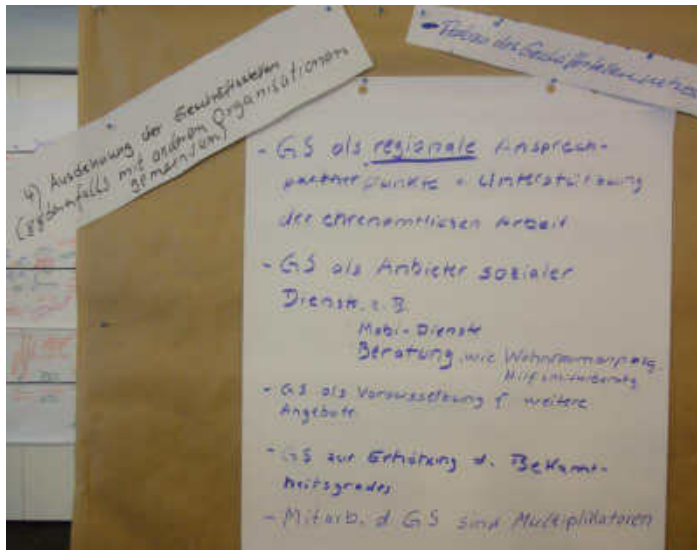 4) Ausdehnung der Geschäftsstellen
(ggebenfalls mit anderen Organisationen
gemeinsam)
des Geschäftsstellen
- GS als regionale Ansprech-
partner punkte + Unterstützung
der ehrenamtlichen Arbeit
- GS als Anbieter sozialer
Dienste z.B.
Mobi-Dienste
Beratung wie Wohnraumanpassg.
Hilfsmittelberatg
- GS als Voraussetzung f weitere
Angebote
- GS zur Erhöhung d. Bekannt-
heitsgrades
- Mitarb. d GS sind Multiplikatoren